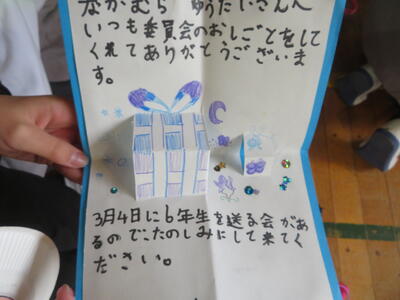 なかむら ゆうだいさんへ
いつも委員会のおしごとをして
くれてありがとうございま
す。
3月4日に6年生を送る会があ
るのでこたのしみにして来てく
ださい。